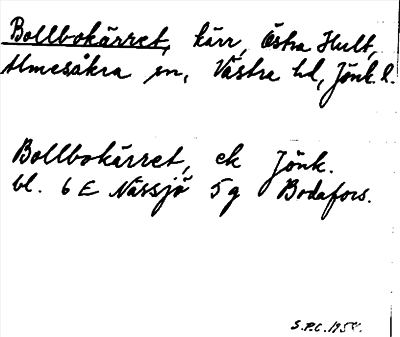 Bollbokärret, kärr, Östra Hult,
Almesåkra sn, Västra hd, Jönk. l.
Bollbokärret, ek Jönk.
bl. 6 E Nässjö 5 g Bodafors.